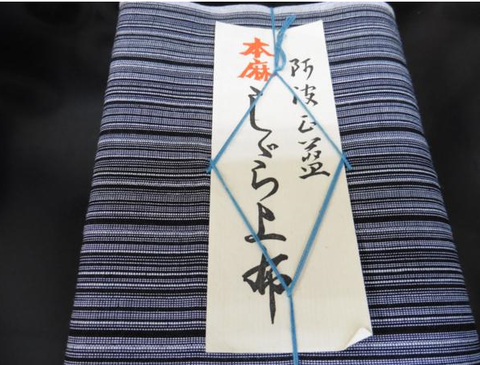 阿波正藍
本麻
しゞら上布